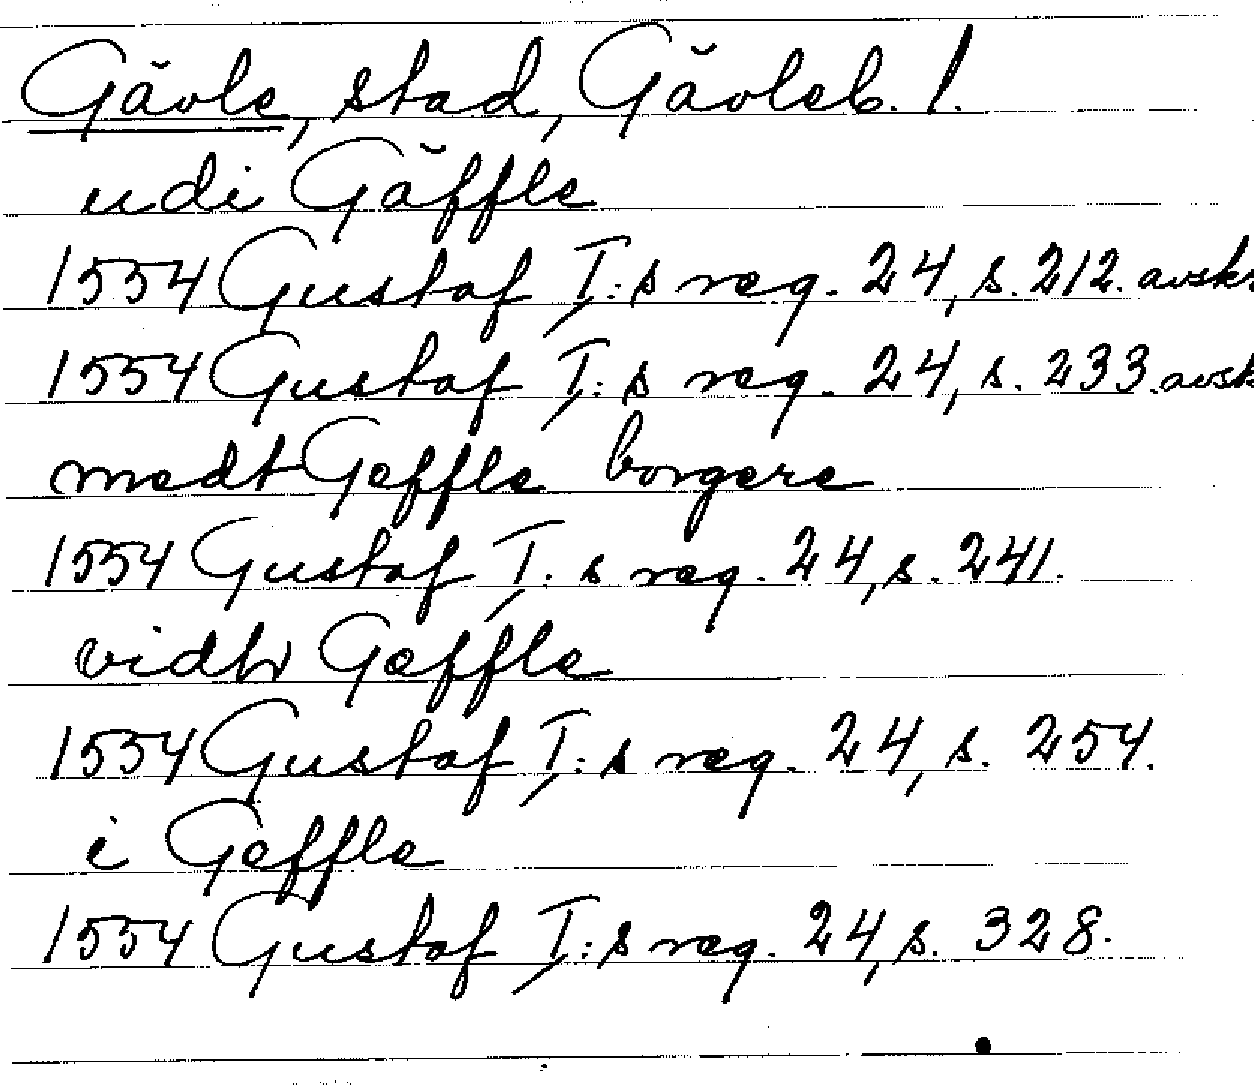 Gävle, stad, Gävleb. l.
udi Gäffle
1554 Gustaf I:s reg. 24, s. 212. avskr.
1554 Gustaf I:s reg. 24, s. 233. avsk
medt Geffle borgere
1554 Gustaf I:s reg. 24, s. 241.
vidh Geffle
1554 Gustaf I:s reg. 24, s. 254.
i Geffle
1554 Gustaf I:s reg. 24, s. 328.